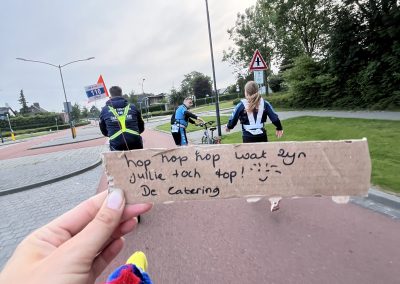 hop hop hop wat zijn
jullie toch top!
De catering